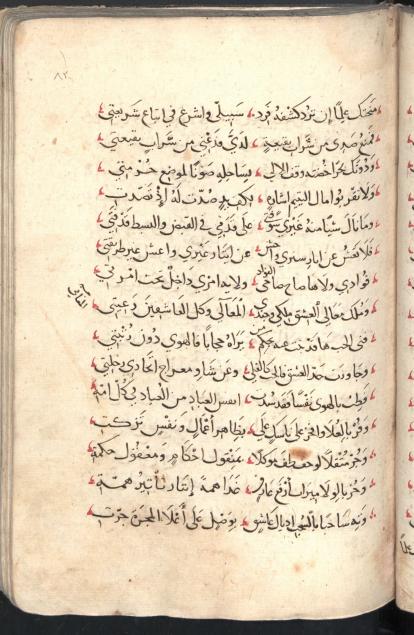 ٨٢
منحتك علما ان ترد كشفه فرد سبيلي واشرع في اتباع شريعتي
فمنبع صدى من شراب نقيعه لدي فدعني من سراب بقيعتي
ودونك بحرا خضته وقف الالى بساحله صونا لموضع حرمتي
ولا تقربوا مال اليتيم اشارة لكف يد صدت له اذ تصدت
وما نال شيئا منه غيري سوى فتى على قدمي في القبض والبسط ما فتي
فلا تعش عن اثار سيري واخش غين ايثار غيري واغش عين طريقتي
فؤادي ولاها صاح صاحي الفؤاد في ولاية امري داخل تحت امرتي
وملك معالي العشق ملكي وجندي المعاني وكل العاشقين رعيتي
فتى الحب ها قد بنت عنه بحكم من يراه حجابا فالهوى دون رتبتي
وجاوزت حد العشق فالحب كالقلى وعن شاو معراج اتحادي رحلتي
فطب بالهوى نفسا فقد سدت انفس العباد من العباد في كل امة
وفز بالعلا وافخر على ناسك علا بظاهر اعمال ونفس تزكت
وجز مثقلا لو خف طف موكلا بمنقول احكام ومعقول حكمة
وحز بالولا ميراث ارفع عارف غدا همه ايثار تاثير همة
وته ساحبا بالسحب اذيال عاشق بوصل على اعلا المجرة جرت